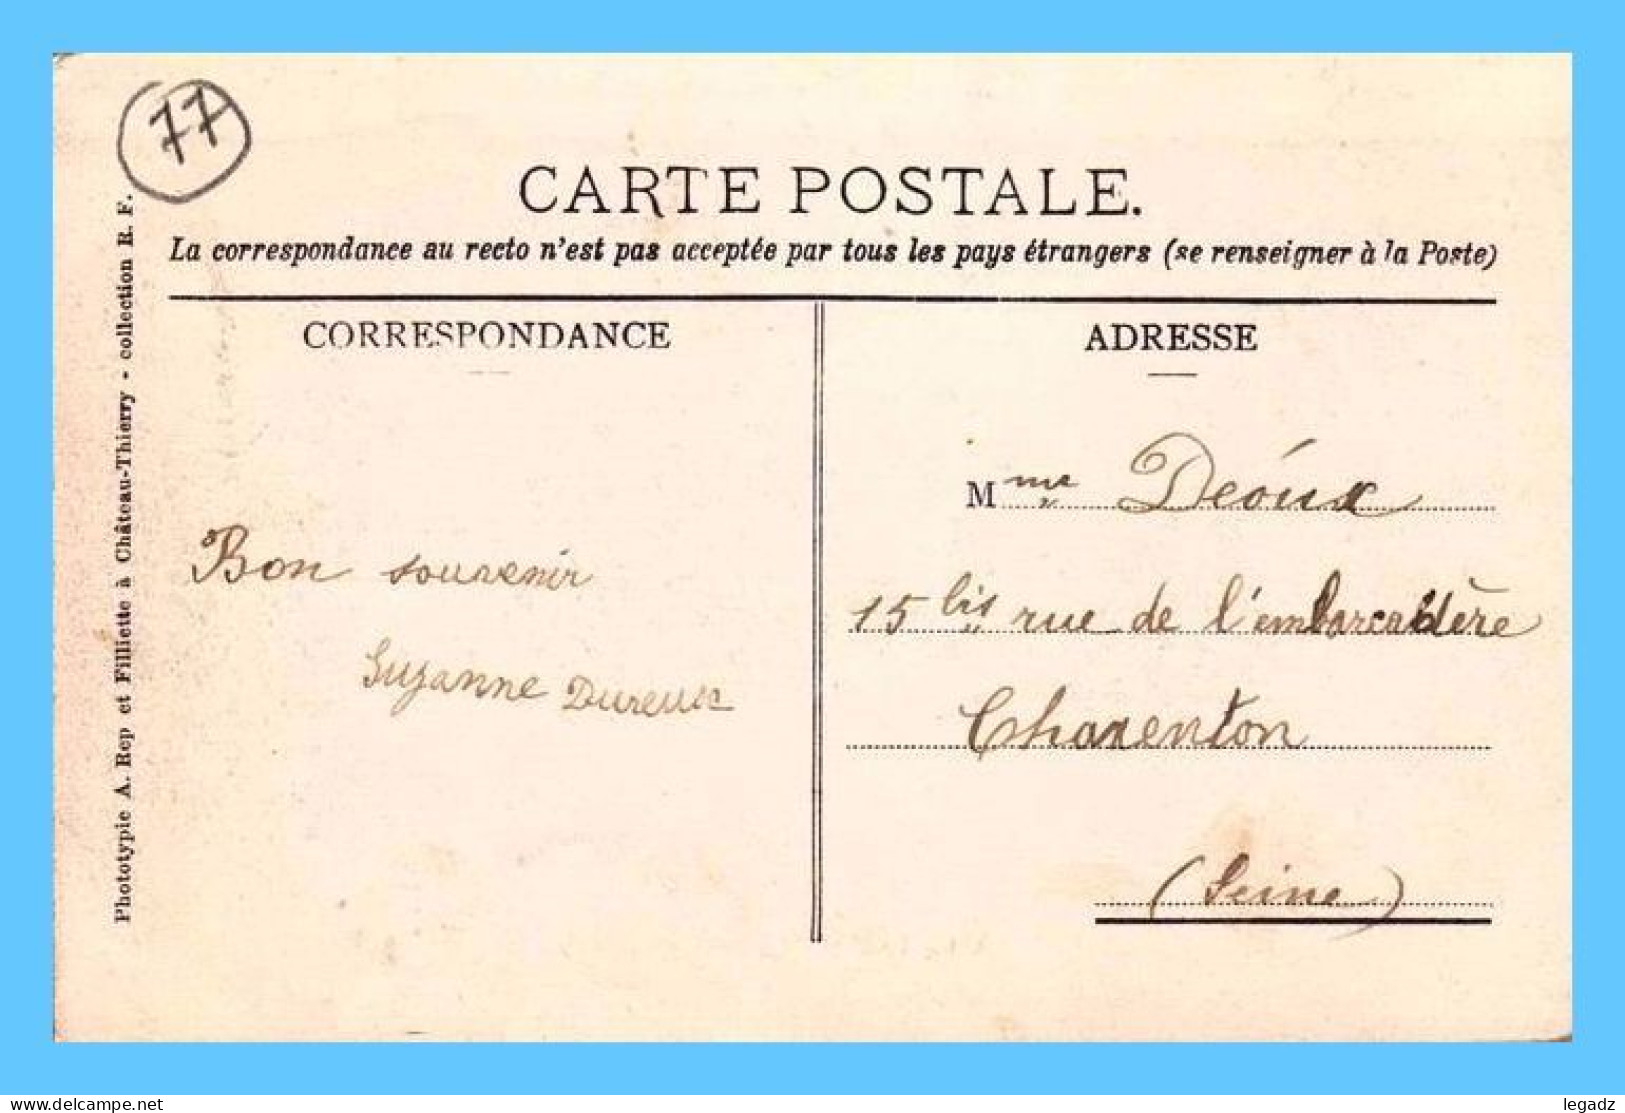 77
CARTE POSTALE.
La correspondance au recto n'est pas acceptée par tous les pays étrangers (se renseigner à la Poste)
Phototypie A. Rep et Filliette à Château-Thierry - collection R. F.
CORRESPONDANCE
Bon souvenir
Suzanne Dureux
ADRESSE
Mme Déoux
15 bis rue de l'embarcadère
Charenton
(Seine)
www.delcampe.net
legadz